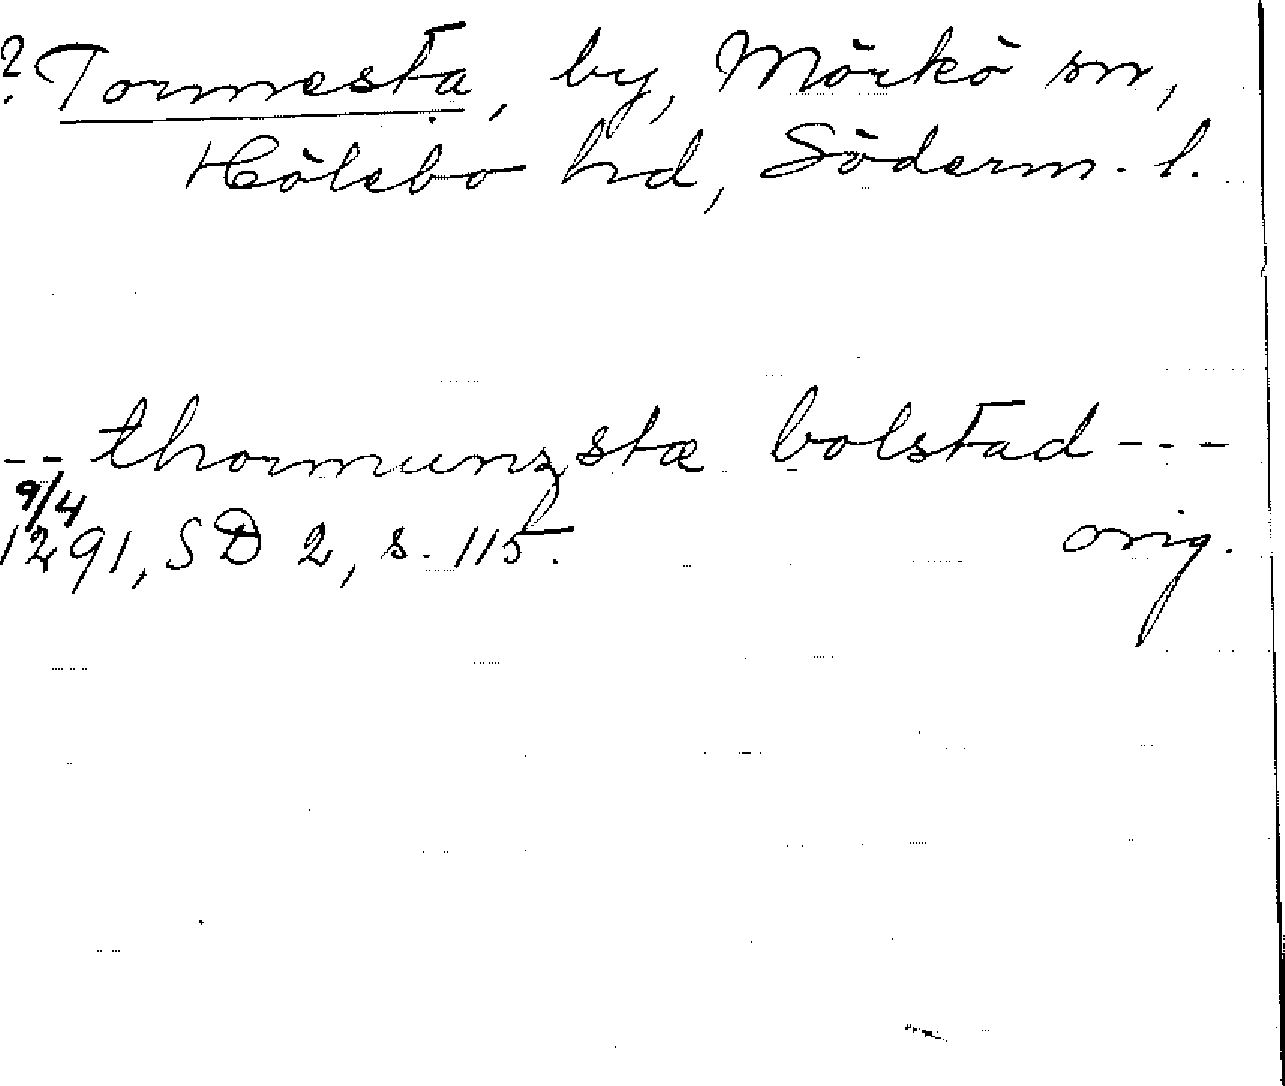 ? Tormesta, by, Mörkö sn,
Hölebo hd, Söderm. l.
-- thormunzstæ bolstad ---
9/4
1291, SD 2, s. 115. orig.